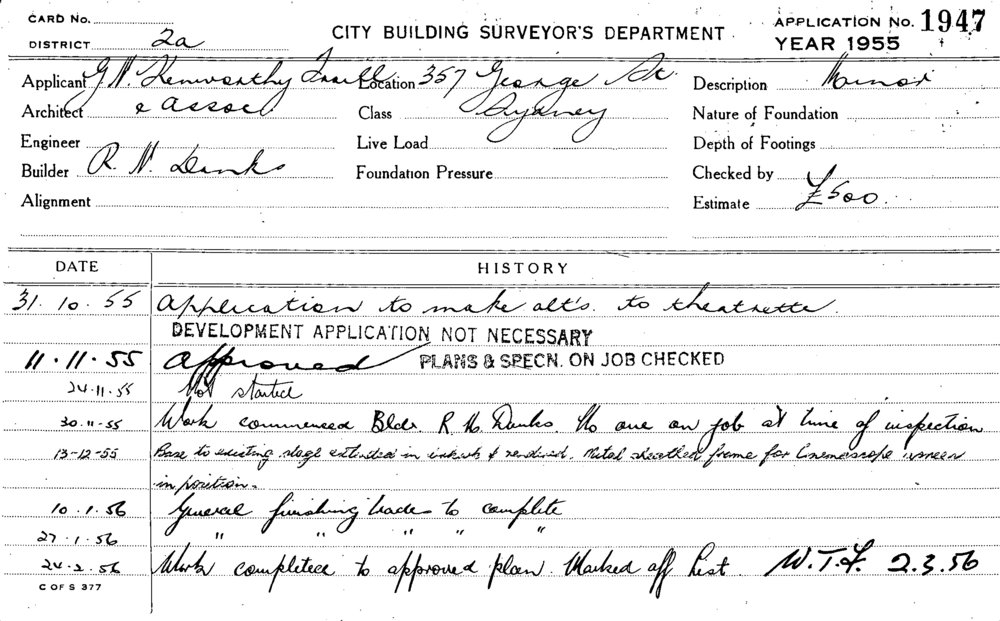 CARD No.
DISTRICT 2a
CITY BUILDING SURVEYOR'S DEPARTMENT
APPLICATION No. 1947
YEAR 1955
Applicant G. N. Kenworthy
Location 357 George St
Description Minor
Architect & Assoc
Class Sydney
Nature of Foundation
Engineer
Live Load
Depth of Footings
Builder R. H. Danks
Foundation Pressure
Checked by
Alignment
Estimate £500
DATE HISTORY
31.10.55 Application to make alt's. to theatrette.
DEVELOPMENT APPLICATION NOT NECESSARY
11.11.55 Approved PLANS & SPECN. ON JOB CHECKED
24.11.55 Not started
30.11.55 Work commenced Bldr. R. H. Danks. No one on job at time of inspection
13-12-55 Base to existing stage extended in & rendered. Metal sheathed frame for Cinemascope screen
in position.
10.1.56 General finishing trades to complete
27.1.56 " " " "
24.2.56 Work completed to approved plan. Marked off List. W.T.F. 2.3.56
C OF S 377